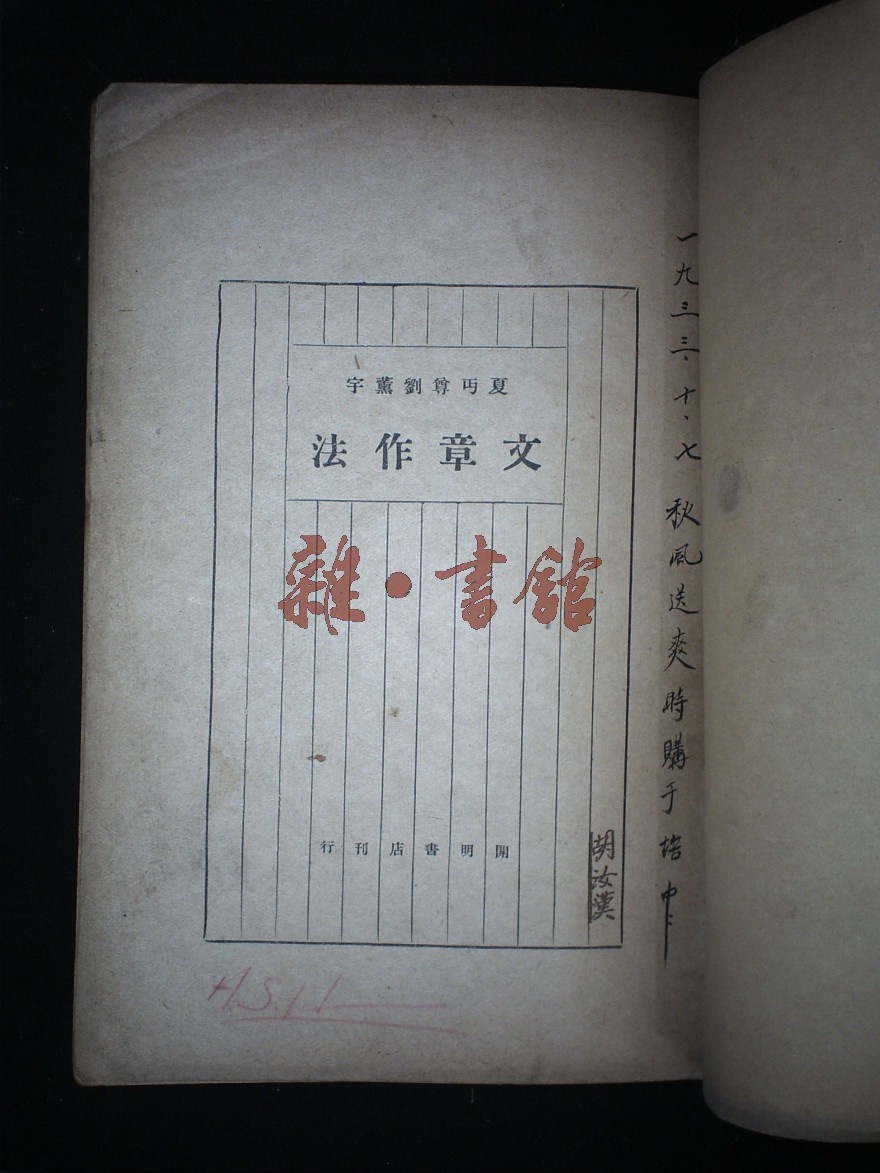 夏丏尊劉薰宇
文章作法
雜·書館
開明書店刊行
胡汝漢
一九三三、十、七 秋風送爽時購于培中
H.S.H